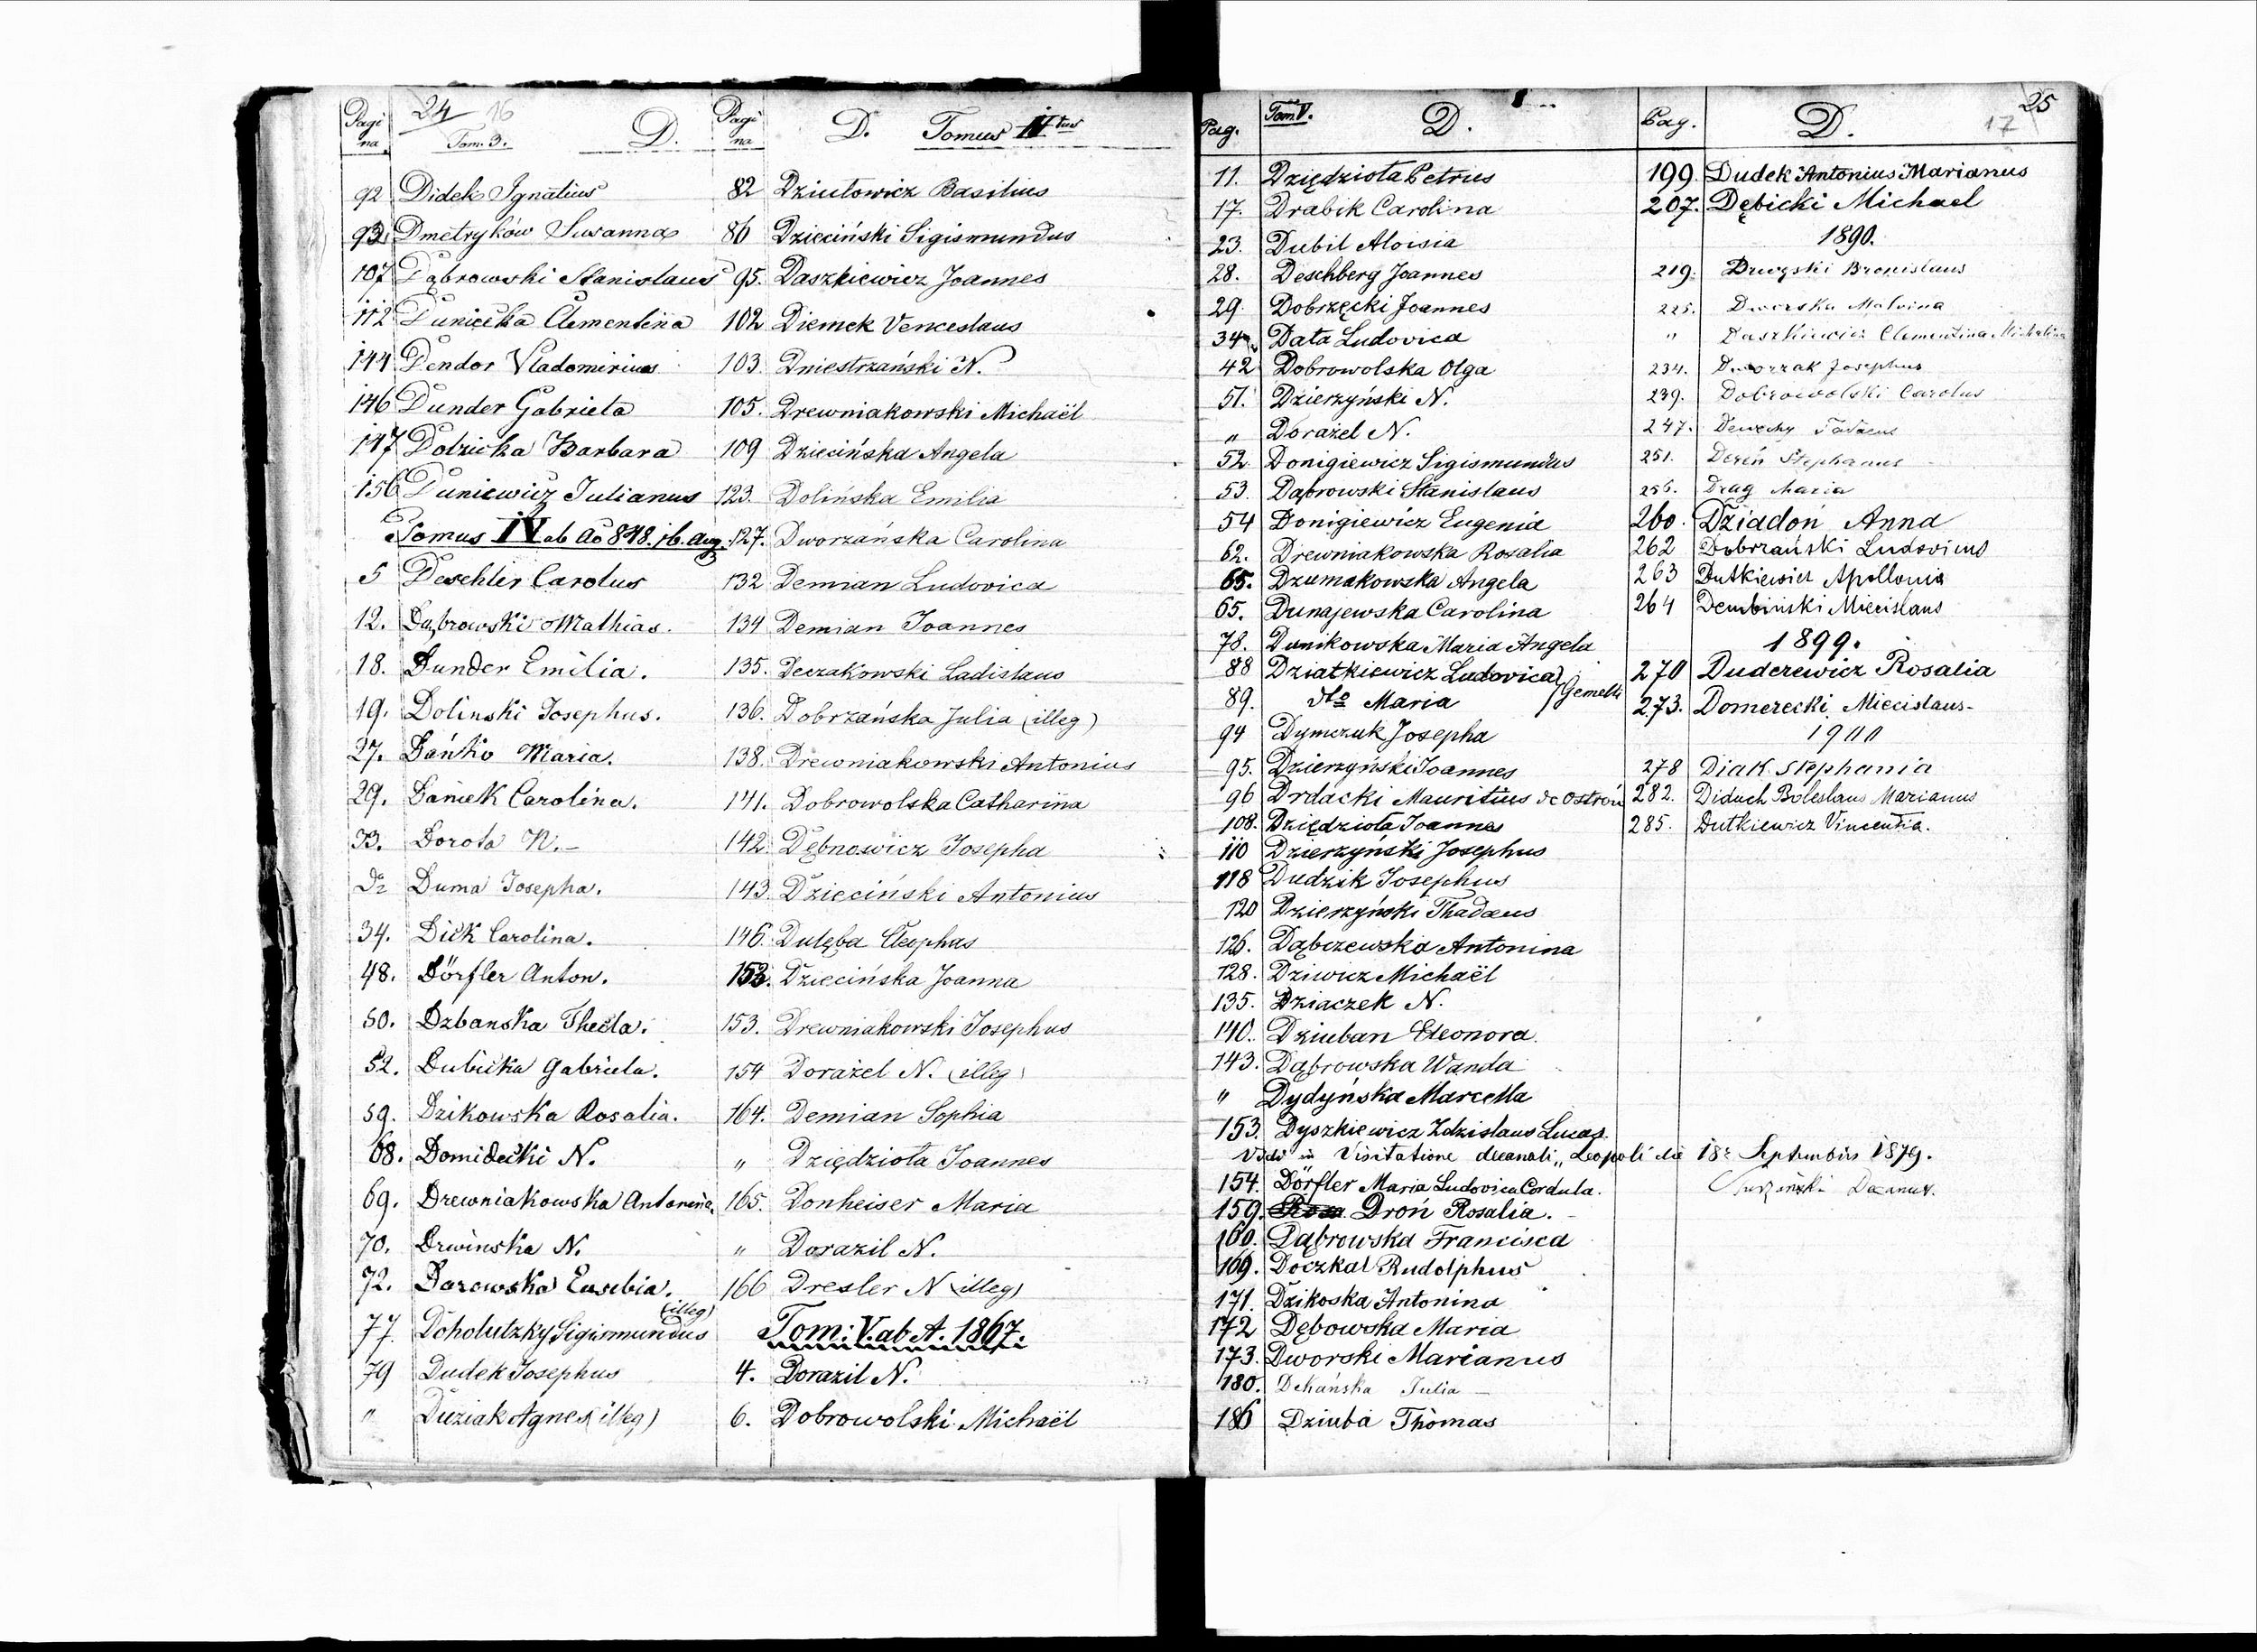 24 16
Pagina
Tom. 3. D.
92 Didek Ignatius
93 Dmetryków Susanna
107 Dąbrowski Stanislaus
112 Duniecka Clementina
144 Dendor Vladomirius
146 Dunder Gabriela
147 Dolzicka Barbara
156 Duniewicz Julianus
Tomus IV ab Ao 848. 16. Aug.
5 Deschler Carolus
12. Dąbrowski Mathias.
18. Dunder Emilia.
19. Dolinski Josephus.
27. Dańko Maria.
29. Daniek Carolina.
33. Dorota N.-
Duma Josepha.
34. Dick Carolina.
48. Dörfler Anton.
50. Dzbanska Thecla.
52. Dubicka Gabriela.
59. Dzikowska Rosalia.
68. Domidecki N.
69. Drewniakowska Antonina.
70. Drwinska N.
72. Darowska Eusebia.
(illeg)
77. Doholutzky Sigismundus
79 Dudek Josephus
" Duziak Agnes (illeg)
Pagina
D. Tomus IVtus
82 Dziutowicz Basilius
86 Dzieciński Sigismundus
95. Daszkiewicz Joannes
102 Diemek Venceslaus
103. Dniestrzański N.
105. Drewniakowski Michaël
109 Dziecińska Angela
123. Dolińska Emilia
127. Dworzańska Carolina
132 Demian Ludovica
134 Demian Joannes
135. Deczakowski Ladislaus
136. Dobrzańska Julia (illeg)
138. Drewniakowski Antonius
141. Dobrowolska Catharina
142. Dębnowicz Josepha
143. Dzieciński Antonius
146. Dulęba Cleophas
152. Dziecińska Joanna
153. Drewniakowski Josephus
154 Dorażel N. (illeg)
164. Demian Sophia
" Dziędzioła Joannes
165. Donheiser Maria
" Dorazil N.
166 Dresler N (illeg)
Tom: V. ab A. 1867.
4. Dorazil N.
6. Dobrowolski Michaël
Pag. Tom V. D.
11. Dziędzioła Petrus
17. Drabik Carolina
23. Dubil Aloisia
28. Deschberg Joannes
29. Dobrzęcki Joannes
34 Data Ludovica
42 Dobrowolska Olga
51. Dzierzyński N.
" Dorażel N.
52 Donigiewicz Sigismundus
53. Dąbrowski Stanislaus
54 Donigiewicz Eugenia
62. Drewniakowska Rosalia
65. Dzumakowska Angela
65. Dunajewska Carolina
78. Dunikowska Maria Angela
88 Dziatkiewicz Ludovica
89. dto Maria } Gemelli
94 Dymczuk Josepha
95. Dzierzyński Joannes
96 Drdacki Mauritius de Ostrów
108. Dziędzioła Joannes
110 Dzierzyński Josephus
118 Dudzik Josephus
120 Dzierzyński Thadaeus
126. Dąbczewska Antonina
128. Dziwicz Michaël
135. Dziaczek N.
140. Dziuban Eleonora
143. Dąbrowska Wanda
" Dydyńska Marcella
153. Dyszkiewicz Zdzislaus Lucas
Vidi in Visitatione decanali, Leopoli die 18 Septembris 1879.
Decanus.
154. Dörfler Maria Ludovica Cordula.
159. Droń Rosalia.
160. Dąbrowska Francisca
169. Doczkal Rudolphus
171. Dzikoska Antonina
172 Dębowska Maria
173. Dworski Marianus
180. Dekańska Julia
186 Dziuba Thomas
25
17
Pag. D.
199. Dudek Antonius Marianus
207. Dębicki Michael
1890.
219. Bronislaus
225. Dworska Malvina
" Daszkiewicz Clementina Michalina
234. Dworzak Josephus
239. Dobrowolski Carolus
247.
251. Dereń Stephanus
256. Drag Maria
260. Dziadoń Anna
262 Dobrzański Ludovicus
263 Dutkiewicz Apollonia
264 Dembiński Miecislaus
1899.
270 Duderewicz Rosalia
273. Domerecki Miecislaus-
1900
278 Diak Stephania
282. Diduch Boleslaus Marianus
285. Dutkiewicz Vincentia.